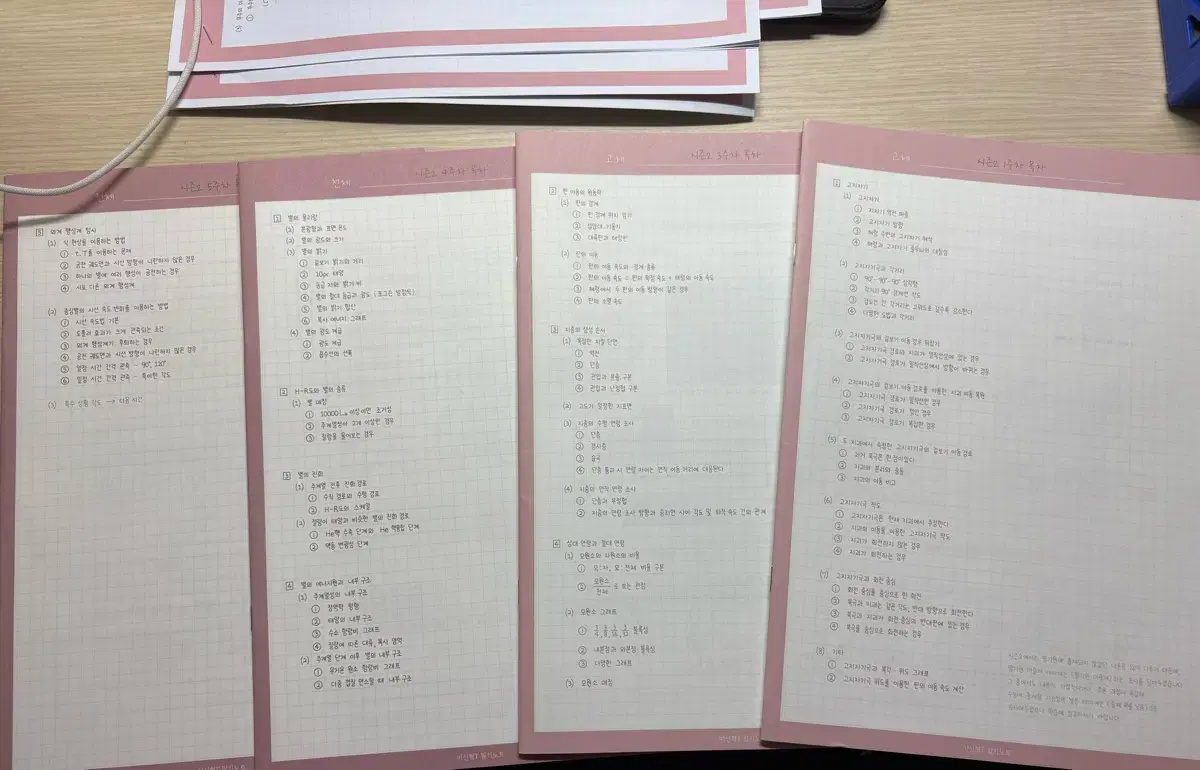 시즌2 5주차
5 외계 행성계 탐사
(1) 식 현상을 이용하는 방법
① t, T를 이용하는 문제
② 공전 궤도면과 시선 방향이 나란하지 않은 경우
③ 하나의 별에 여러 행성이 공전하는 경우
④ 서로 다른 외계 행성계
(2) 중심별의 시선 속도 변화를 이용하는 방법
① 시선 속도법 기본
② 도플러 효과가 크게 관측되는 조건
③ 외계 행성계가 후퇴하는 경우
④ 공전 궤도면과 시선 방향이 나란하지 않은 경우
⑤ 일정 시간 간격 관측 - 90°, 120°
⑥ 일정 시간 간격 관측 - 특이한 각도
(3) 특수 상황 각도 → 다음 시간
비신혁T 필기노트
천체
시즌2 4주차 목차
1 별의 물리량
(1) 분광형과 표면 온도
(2) 별의 광도와 크기
(3) 별의 밝기
① 겉보기 밝기와 거리
② 10pc 태양
③ 등급 차와 밝기 비
④ 별의 절대 등급과 광도 (포그슨 방정식)
⑤ 별의 밝기 합산
⑥ 복사 에너지 그래프
(4) 별의 광도 계급
① 광도 계급
② 흡수선의 선폭
2 H-R도와 별의 종류
(1) 별 매칭
① 10000L☉ 이상이면 초거성
② 주계열성이 2개 이상인 경우
③ 질량을 물어보는 경우
3 별의 진화
(1) 주계열 전후 진화 경로
① 수직 경로와 수평 경로
② H-R도의 스케일
(2) 질량이 태양과 비슷한 별의 진화 경로
① He핵 수축 단계와 He 핵융합 단계
② 맥동 변광성 단계
4 별의 에너지원과 내부 구조
(1) 주계열성의 내부 구조
① 정역학 평형
② 태양의 내부 구조
③ 수소 함량비 그래프
④ 질량에 따른 대류, 복사 영역
(2) 주계열 단계 이후 별의 내부 구조
① 무거운 원소 함량비 그래프
② 다중 껍질 연소할 때 내부 구조
비신혁T 필기노트
고체
시즌2 3주차 목차
2 판 이동의 원동력
(1) 판의 경계
① 판 경계 위치 암기
② 섭입대 기울기
③ 대륙판과 해양판
(2) 판의 이동
① 판의 이동 속도와 경계 종류
② 판의 이동 속도 = 판의 확장 속도 + 해령의 이동 속도
③ 해령에서 두 판의 이동 방향이 같은 경우
④ 판의 소멸 속도
3 지층의 생성 순서
(1) 복잡한 지질 단면
① 역전
② 단층
③ 관입과 분출 구분
④ 관입과 난정합 구분
(2) 고도가 일정한 지표면
(3) 지층의 수평 연령 조사
① 단층
② 경사층
③ 습곡
④ 단층 통과 시 연령 차이는 연직 이동 거리에 대응된다
(4) 지층의 연직 연령 조사
① 단층과 부정합
② 지층의 연령 조사 방향과 층리면 사이 각도 및 퇴적 속도 간의 관계
4 상대 연령과 절대 연령
(1) 모원소와 자원소의 비율
① 모:자, 모:전체 비율 구분
② 모원소/전체 로 보는 관점
(2) 모원소 그래프
② 내분점과 외분점 볼록성
③ 다양한 그래프
(3) 모원소 매칭
비신혁T 필기노트
고체
시즌2 1주차 목차
1 고지자기
(1) 고지자기
① 지자기 역전 패턴
② 고지자기 방향
③ 해령 주변의 고지자기 해석
④ 해령과 고지자기 줄무늬의 대칭성
(2) 고지자기극과 각거리
① 90°-90°-90° 삼각형
② 각거리 90° 경계면 작도
③ 경도만 간 각거리는 고위도로 갈수록 감소한다
④ 다양한 도법과 각거리
(3) 고지자기극의 겉보기 이동 경로 뒤집기
① 고지자기극 경로와 지괴가 일직선상에 있는 경우
② 고지자기극 경로가 일직선상에서 방향이 바뀌는 경우
(4) 고지자기극의 겉보기 이동 경로를 이용한 지괴 이동 복원
① 고지자기극 경로가 일직선인 경우
② 고지자기극 경로가 꺾인 경우
③ 고지자기극 경로가 복잡한 경우
(5) 두 지괴에서 측정한 고지자기극의 겉보기 이동 경로
① 과거 북극은 한 점이었다
② 지괴의 분리와 충돌
③ 지괴의 이동 비교
(6) 고지자기극 작도
① 고지자기극은 현재 지괴에서 추정한다
② 지괴의 이동을 이용한 고지자기극 작도
③ 지괴가 회전하지 않는 경우
④ 지괴가 회전하는 경우
(7) 고지자기극과 회전 중심
① 회전 중심을 중심으로 한 회전
② 북극과 지괴는 같은 각도, 반대 방향으로 회전한다
③ 북극과 지괴가 회전 중심의 반대편에 있는 경우
④ 북극을 중심으로 회전하는 경우
(8) 기타
① 고지자기극과 복각-위도 그래프
② 고지자기극 위도를 이용한 판의 이동 속도 계산
비신혁T 필기노트